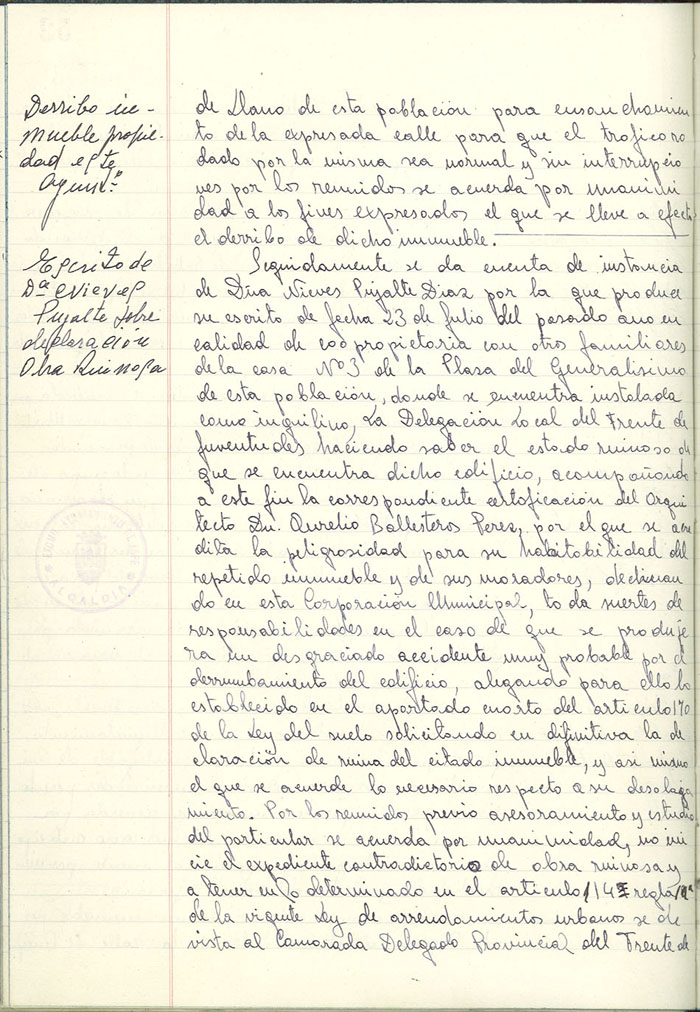 Derribo in-
mueble propie-
dad este
Ayunt.º
Escrito de
Dª Nieves
Pujalte sobre
declaración
Obra Ruinosa
de Llano de esta población para ensanchamien
to de la expresada calle para que el trafico ro
dado por la misma sea normal y sin interrupcio
nes por los reunidos se acuerda por unanimi
dad a los fines expresados el que se lleve a efecto
el derribo de dicho inmueble.
Seguidamente se da cuenta de instancia
de Dña Nieves Pujalte Diaz por la que produce
su escrito de fecha 23 de Julio del pasado ano en
calidad de coopropietaria con otros familiares
de la casa Nº3 de la Plasa del Generalisimo
de esta población, donde se encuentra instalada
como inquilino, La Delegación Local del Frente de
Juventudes haciendo saber el estado ruinoso en
que se encuentra dicho edificio, acompañando
a este fin la correspondiente certificación del Arqui
tecto Dn. Aurelio Ballesteros Perez, por el que se acre
dita la peligrosidad para su habitabilidad del
repetido inmueble y de sus moradores, declinan
do en esta Corporación Municipal, toda suertes de
responsabilidades en el caso de que se produje
ra un desgraciado accidente muy probable por el
derrumbamiento del edificio, alegando para ello lo
establecido en el apartado cuarto del articulo 170
de la Ley del suelo solicitando en difinitiva la de
claración de ruina del citado inmueble, y asi mismo
el que se acuerde lo necesario respecto a su desaloja
miento. Por los reunidos previo asesoramiento y estudio
del particular se acuerda por unanimidad, se ini
cie el expediente contradictorio de obra ruinosa y
a tener en lo determinado en el articulo 114 regla 1ª
de la vigente Ley de arrendamientos urbanos se de
vista al Camarada Delegado Provincial del Frente de
ALCALDIA